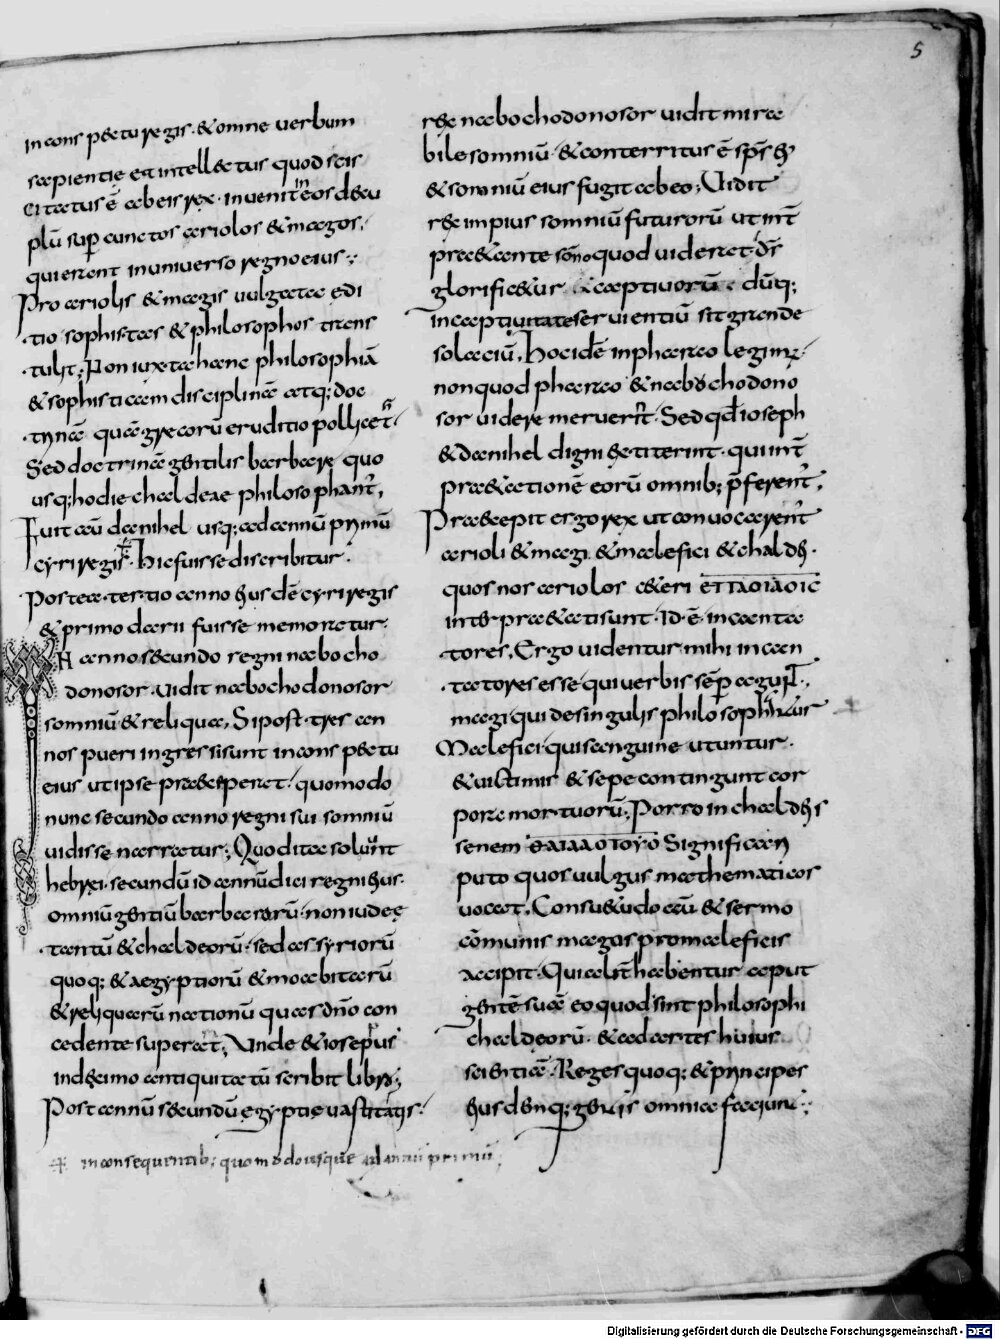 5
in conspectu regis · & omne verbum
sapientie et intellectus quod scis
citatus ē ab eis rex · invenit in eos decu
plū sup cunctos ariolos & magos ·
qui erant in universo regno eius ;
Pro ariolis & magis vulgata edi
tio sophistas & philosophos trans
tulit ; Non iuxta hanc philosophiā
& sophisticam disciplinā atq; doc
trinā quā grecorū eruditio pollicet
Sed doctrinā gentilis barbare quo
usq; hodie chaldeae philosophant ,
Fuit aū danihel usq; ad annū primū
cyri regis · Hic fuisse discribitur ·
Postea · tertio anno eius dē cyri regis
& primo darii fuisse memoratur
IN anno secundo regni nabocho
donosor · vidit nabochodonosor
somniū & reliqua , Si post tres an
nos pueri ingressi sunt in conspectu
eius ut ipse praeceperat · quomodo
nunc secundo anno regni sui somniū
vidisse narratur ; Quod ita solvunt
hebrei · secundū id annū dici regni eius ·
omniū gentiū barbararū · non iudeę
tantū & chaldeorū · sed assyriorū
quoq; & aegyptiorū & moabitarū
& reliquarū nationū quas dn̄o con
cedente superat , Unde & iosepus
in decimo antiquitatū scribit libro ;
Post annū secundū egyptie vastitatis ·
in consequentib; quomodo usque ad annū primū ;
rex nabochodonosor vidit mira
bile somniū · & conterritus ē sps ei
& somniū eius fugit ab eo ; Vidit
rex impius somniū futurorū ut int
praetante sōno quod viderat · ds
glorificetur & captivorū dūq;
in captivitate servientiū sit grande
solaciū . Hoc idē in pharao legim ·
non quod pharao & nabochodono
sor videre meruerit · Sed qd ioseph
& danihel digni extiterint · qui int
praetationē eorū omnib; pferent ,
Praecepit ergo rex ut convocarent
arioli & magi & malefici & chaldei ·
quos nos ariolos ceteri ΕΠΑΟΙΔΟΙC
interpraetati sunt · Id · ē · incanta
tores , Ergo videntur mihi incan
tatores esse qui verbis sep agunt ·,
magi qui de singulis philosophantur
Malefici · qui sanguine utuntur ·
& victimis & sepe contingunt cor
pora mortuorū ; Porro in chaldeis
senem Significari
puto quos vulgus mathematicos
vocat , Consuetudo aū & sermo
cōmunis magos pro maleficis
accipit · Qui alit habentur aput
gentē suā eo quod sint philosophi
chaldeorū · & ad artes huius
scientiā · Reges quoq; & principes
eiusdemq; gentis omnia faciunt ;
Digitalisierung gefördert durch die Deutsche Forschungsgemeinschaft - DFG